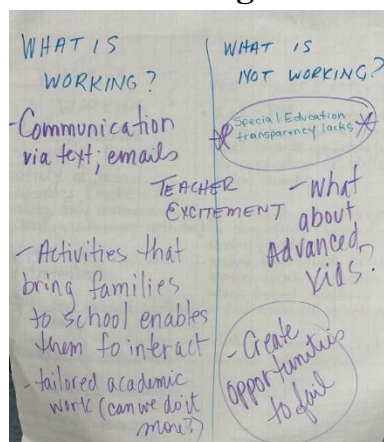 WHAT IS
WORKING?
-Communication
via text; emails
TEACHER
EXCITEMENT
- Activities that
bring families
to school enables
them to interact
- tailored academic
work (can we do it
more?)
WHAT IS
NOT WORKING?
Special Education
transparency lacks
- What
about
Advanced
Kids?
- Create
opportunities
to fail